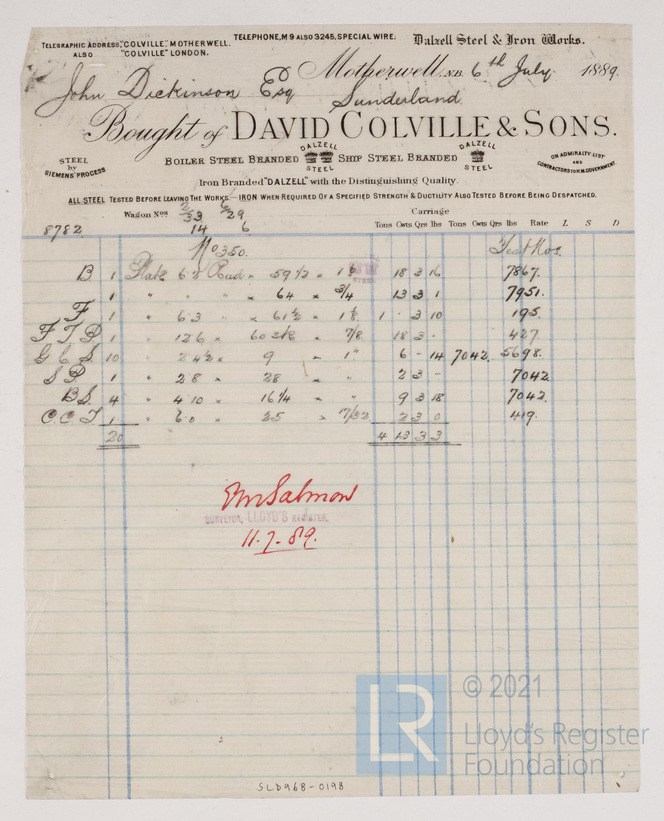 TELEGRAPHIC ADDRESS, "COLVILLE" MOTHERWELL.
ALSO "COLVILLE" LONDON.
TELEPHONE, M9 ALSO 3245, SPECIAL WIRE.
Dalzell Steel & Iron Works.
Motherwell, N.B. 6th July 1889.
John Dickinson Esq Sunderland
Bought of DAVID COLVILLE & SONS.
STEEL by SIEMENS' PROCESS
BOILER STEEL BRANDED DALZELL STEEL SHIP STEEL BRANDED DALZELL STEEL
ON ADMIRALTY LIST AND CONTRACTORS TO H.M. GOVERNMENT
Iron Branded "DALZELL" with the Distinguishing Quality.
ALL STEEL TESTED BEFORE LEAVING THE WORKS.—IRON WHEN REQUIRED OF A SPECIFIED STRENGTH & DUCTILITY ALSO TESTED BEFORE BEING DESPATCHED.
Wagon Nos 2/33 6/29 Carriage
Tons Cwts Qrs lbs Tons Cwts Qrs lbs Rate £ S D
8782 14 6
No 350. Test Nos.
B 1 Plate 59 1/2 18 3 16 7867.
1 " " " × 64 × 3/4 13 3 1 7951.
F 1 " 6.3 × 61 1/2 × 1 1/8 1 - 3 10 195.
F T P 1 " 12.6 × × 7/8 18 3 - 427
G C S 10 " 2.4 1/2 × 9 × 1" 6 - 14 7042. 5698.
S P 1 " 2.8 × 28 × " 2 3 - 7042
B S 4 " 4.10 × 16 1/4 × " 9 3 18 7042.
C.C.T 1 " 6.0 × 25 × 7/32 2 3 0 419.
20 4 13 3 3
Salmon
SURVEYOR, LLOYD'S REGISTER.
11.7.89.
LR © 2021
Lloyd's Register
Foundation
SLD968-0198